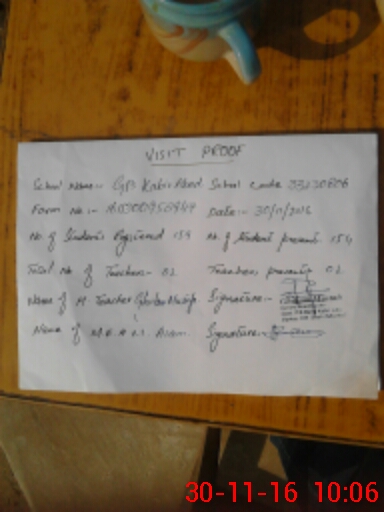 VISIT PROOF
School Name:- GPS Kabir Abad School code
Form No:- Date:- 30/11/2016
No. of Students Registered 154 No. of Student present 154
Total No. of Teachers:- 02 Teachers present 02
Name of H. Teacher Signature:-
Name of Alam Signature:-
30-11-16 10:06